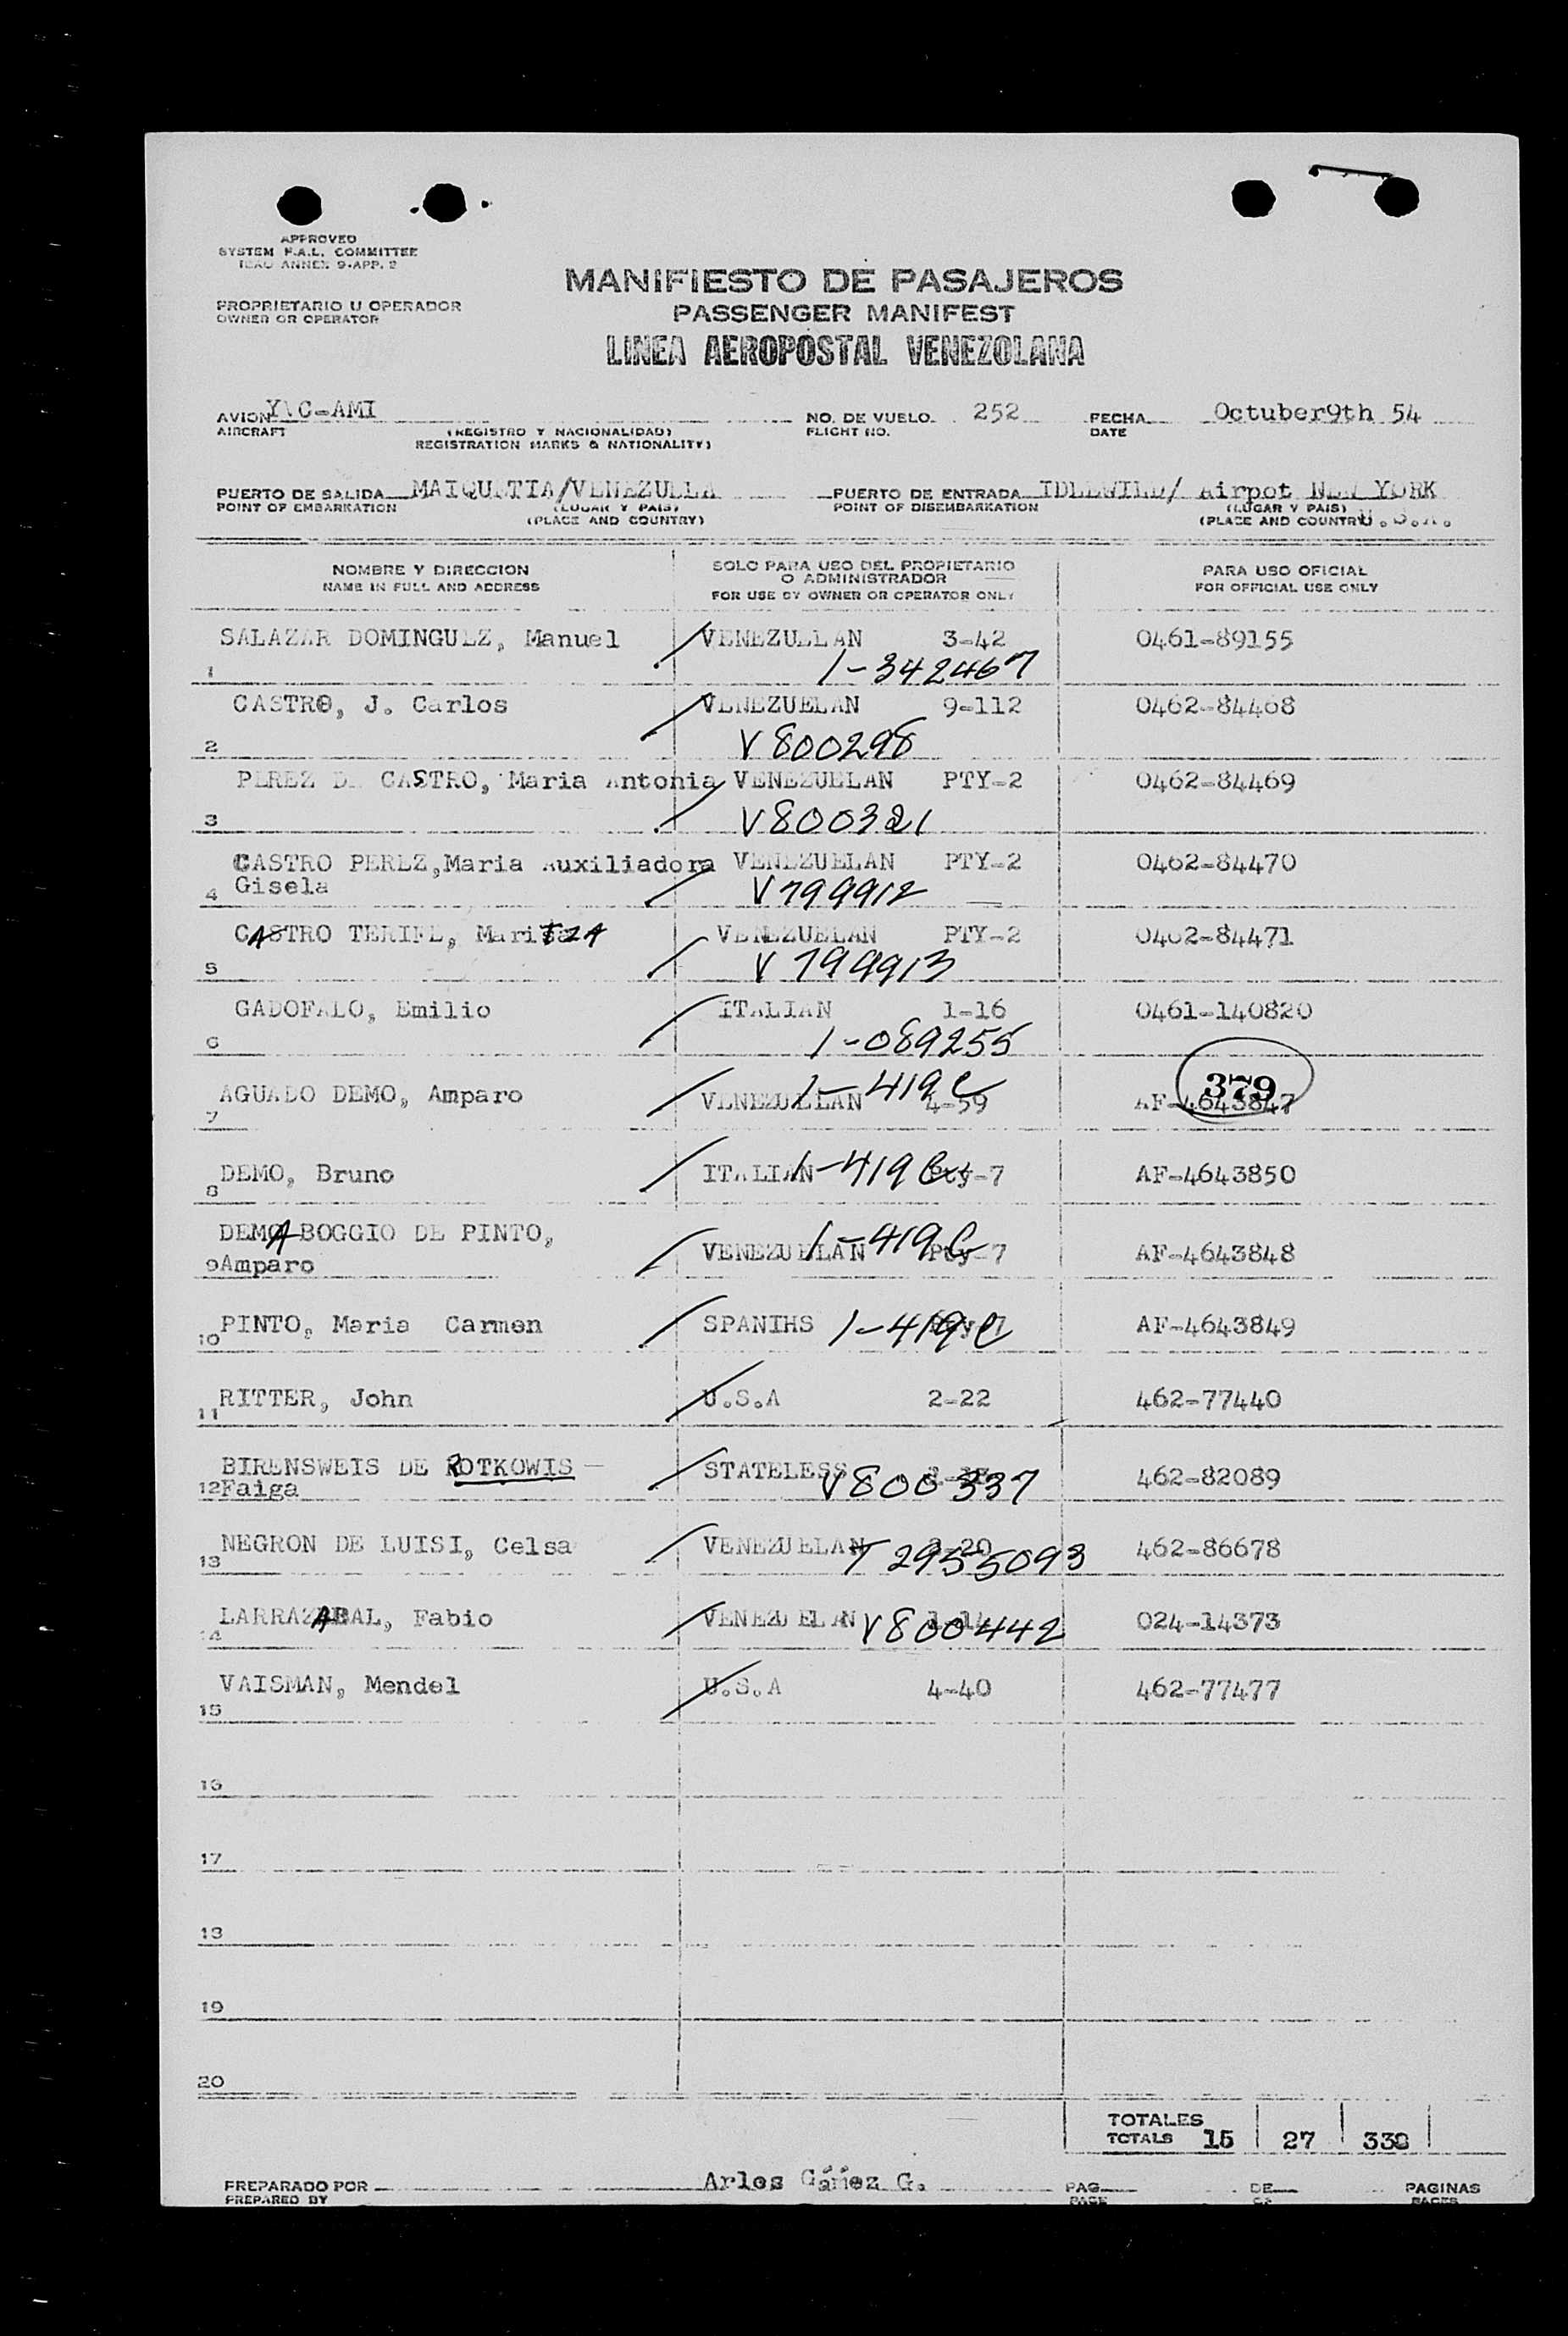 APPROVED
SYSTEM F.A.L. COMMITTEE
ICAO ANNEX 9-APP. 2
PROPRIETARIO U OPERADOR
OWNER OR OPERATOR
MANIFIESTO DE PASAJEROS
PASSENGER MANIFEST
LINEA AEROPOSTAL VENEZOLANA
AVION YVC-AMI NO. DE VUELO 252 FECHA Octuber9th 54
AIRCRAFT (REGISTRO Y NACIONALIDAD) FLIGHT NO. DATE
REGISTRATION MARKS & NATIONALITY)
PUERTO DE SALIDA MAIQUETIA/VENEZUELA PUERTO DE ENTRADA IDLEWILD/ Airpot NEW YORK
POINT OF EMBARKATION (LUGAR Y PAIS) POINT OF DISEMBARKATION (LUGAR Y PAIS)
(PLACE AND COUNTRY) (PLACE AND COUNTRY) U.S.A.
NOMBRE Y DIRECCION SOLO PARA USO DEL PROPIETARIO PARA USO OFICIAL
O ADMINISTRADOR
NAME IN FULL AND ADDRESS FOR USE BY OWNER OR OPERATOR ONLY FOR OFFICIAL USE ONLY
SALAZAR DOMINGUEZ, Manuel VENEZUELAN 3-42 0461-89155
1 1-342467
CASTRO, J. Carlos VENEZUELAN 9-112 0462-84468
2 V800298
PEREZ DE CASTRO, Maria Antonia VENEZUELAN PTY-2 0462-84469
3 V800321
CASTRO PEREZ,Maria Auxiliadora VENEZUELAN PTY-2 0462-84470
4 Gisela V799912
CASTRO TERIFE, MariTZA VENEZUELAN PTY-2 0462-84471
5 V799913
GADOFALO, Emilio ITALIAN 1-16 0461-140820
6 1-089255
379
AGUADO DEMO, Amparo VENEZUELAN 1-419C 4-59 AF-4643847
7
DEMO, Bruno ITALIAN 1-419C Pty-7 AF-4643850
8
DEMO A BOGGIO DE PINTO,
9 Amparo VENEZUELAN 1-419C Pty-7 AF-4643848
10 PINTO, Maria Carmen SPANIHS 1-419C Pty-7 AF-4643849
11 RITTER, John U.S.A 2-22 462-77440
BIRENSWEIS DE ROTKOWIS STATELESS V800337 462-82089
12 Faiga
13 NEGRON DE LUISI, Celsa VENEZUELAN 3-20 T2955093 462-86678
14 LARRAZABAL, Fabio VENEZUELAN 1-14 V800442 024-14373
VAISMAN, Mendel U.S.A 4-40 462-77477
15
16
17
18
19
20
TOTALES
TOTALS 15 27 338
PREPARADO POR Arles Gámez G. PAG. DE PAGINAS
PREPARED BY PAGE OF PAGES